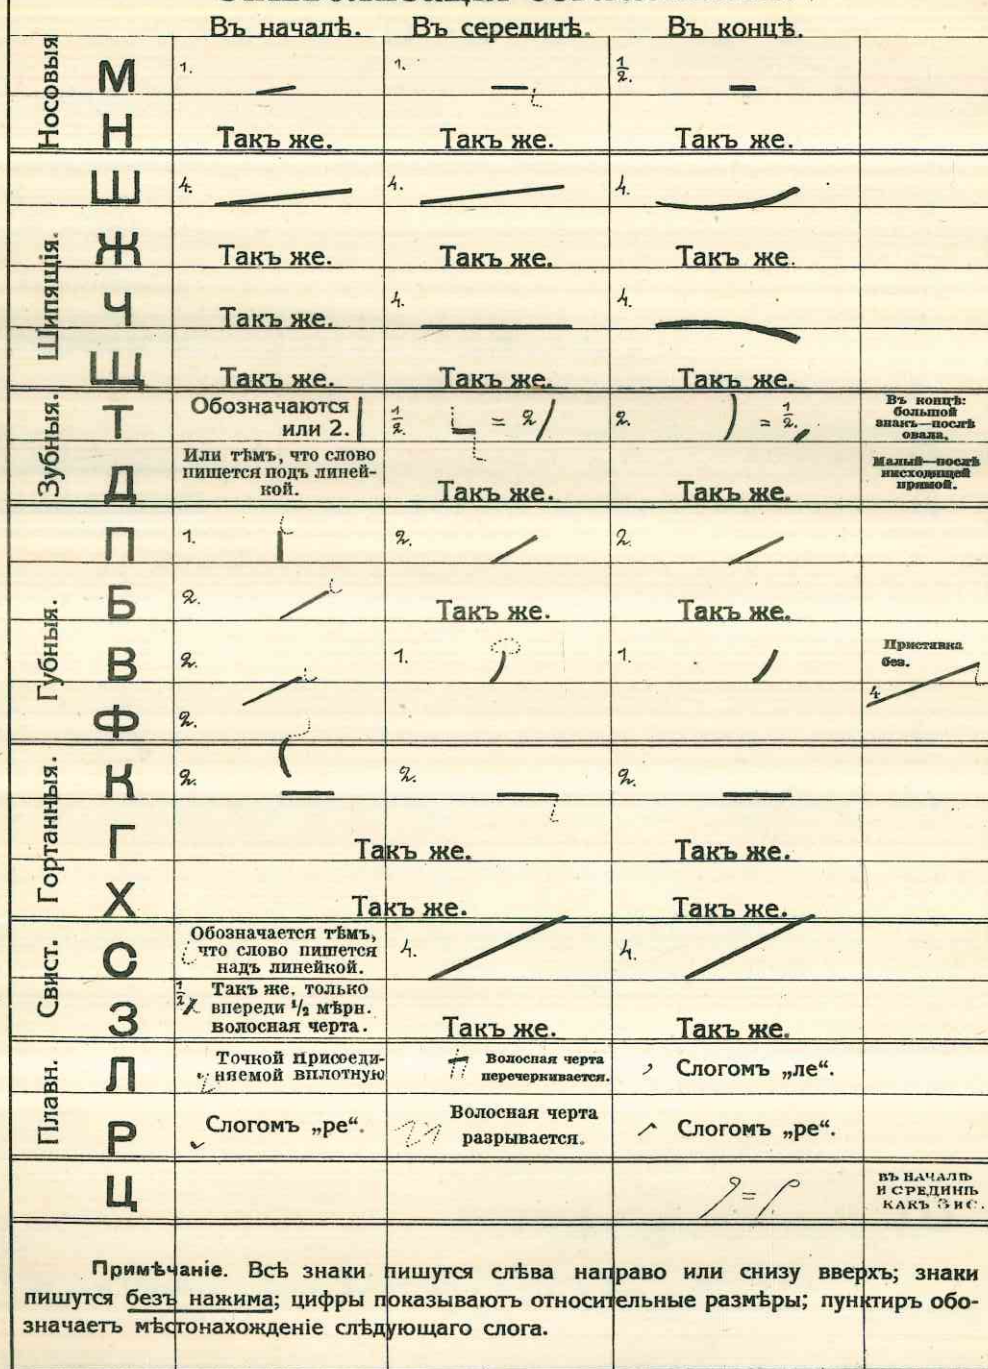 Въ началѣ. Въ серединѣ. Въ концѣ.
Носовыя
М 1. 1. ½.
Н Такъ же. Такъ же. Такъ же.
Шипящія.
Ш 4. 4. 4.
Ж Такъ же. Такъ же. Такъ же.
Ч Такъ же. 4. 4.
Щ Такъ же. Такъ же. Такъ же.
Зубныя.
Т Обозначаются
или 2.
½. = 2
2. = ½.
Въ концѣ:
большой
знакъ—послѣ
овала.
Д Или тѣмъ, что слово
пишется подъ линей-
кой.
Такъ же. Такъ же.
Малый—послѣ
нисходящей
прямой.
Губныя.
П 1. 2. 2.
Б 2. Такъ же. Такъ же.
В 2. 1. 1.
Приставка
без.
4
Ф 2.
Гортанныя.
К 2. 2. 2.
Г Такъ же. Такъ же.
Х Такъ же. Такъ же.
Свист.
С Обозначается тѣмъ,
что слово пишется
надъ линейкой.
4. 4.
З ½ Такъ же, только
впереди ½ мѣрн.
волосная черта.
Такъ же. Такъ же.
Плавн.
Л Точкой присоеди-
няемой вплотную
Волосная черта
перечеркивается.
Слогомъ „ле“.
Р Слогомъ „ре“.
Волосная черта
разрывается.
Слогомъ „ре“.
Ц =
ВЪ НАЧАЛѢ
И СРЕДИНѢ
КАКЪ З и С.
Примѣчаніе. Всѣ знаки пишутся слѣва направо или снизу вверхъ; знаки
пишутся безъ нажима; цифры показываютъ относительные размѣры; пунктиръ обо-
значаетъ мѣстонахожденіе слѣдующаго слога.